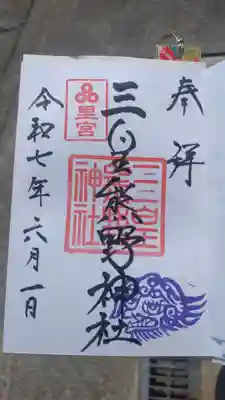 奉拝
三皇熊野神社
品里宮
三皇熊野神社
令和七年六月一日